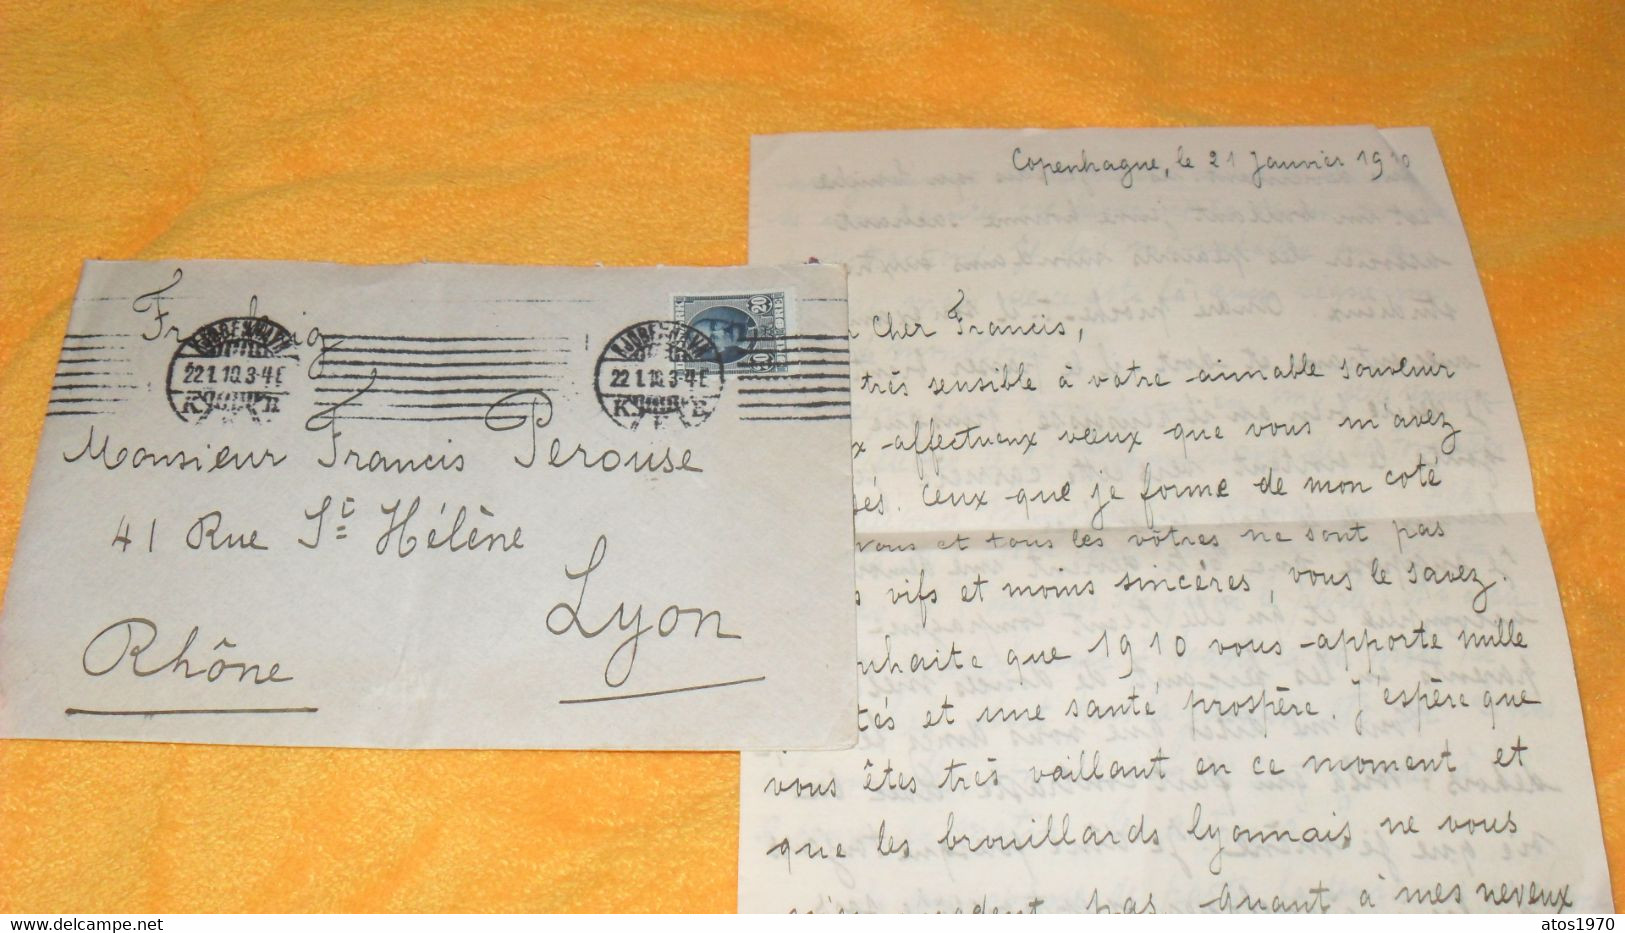 KJØBENHAVN
22.1.10.3-4E
KJØBENHAVN
22.1.10.3-4E
20
20
Monsieur Francis Perouse
41 Rue Ste Hélène
Lyon
Rhône
Copenhague, le 21 Janvier 1910
Cher Francis,
très sensible à votre aimable souvenir
affectueux vœux que vous m'avez
Ceux que je forme de mon coté
vous et tous les vôtres ne sont pas
vifs et moins sincères, vous le savez.
que 1910 vous apporte mille
et une santé prospère. J'espère que
vous êtes très vaillant en ce moment et
que les brouillards lyonnais ne vous
pas. Quant à mes neveux
atos1970
www.delcampe.net